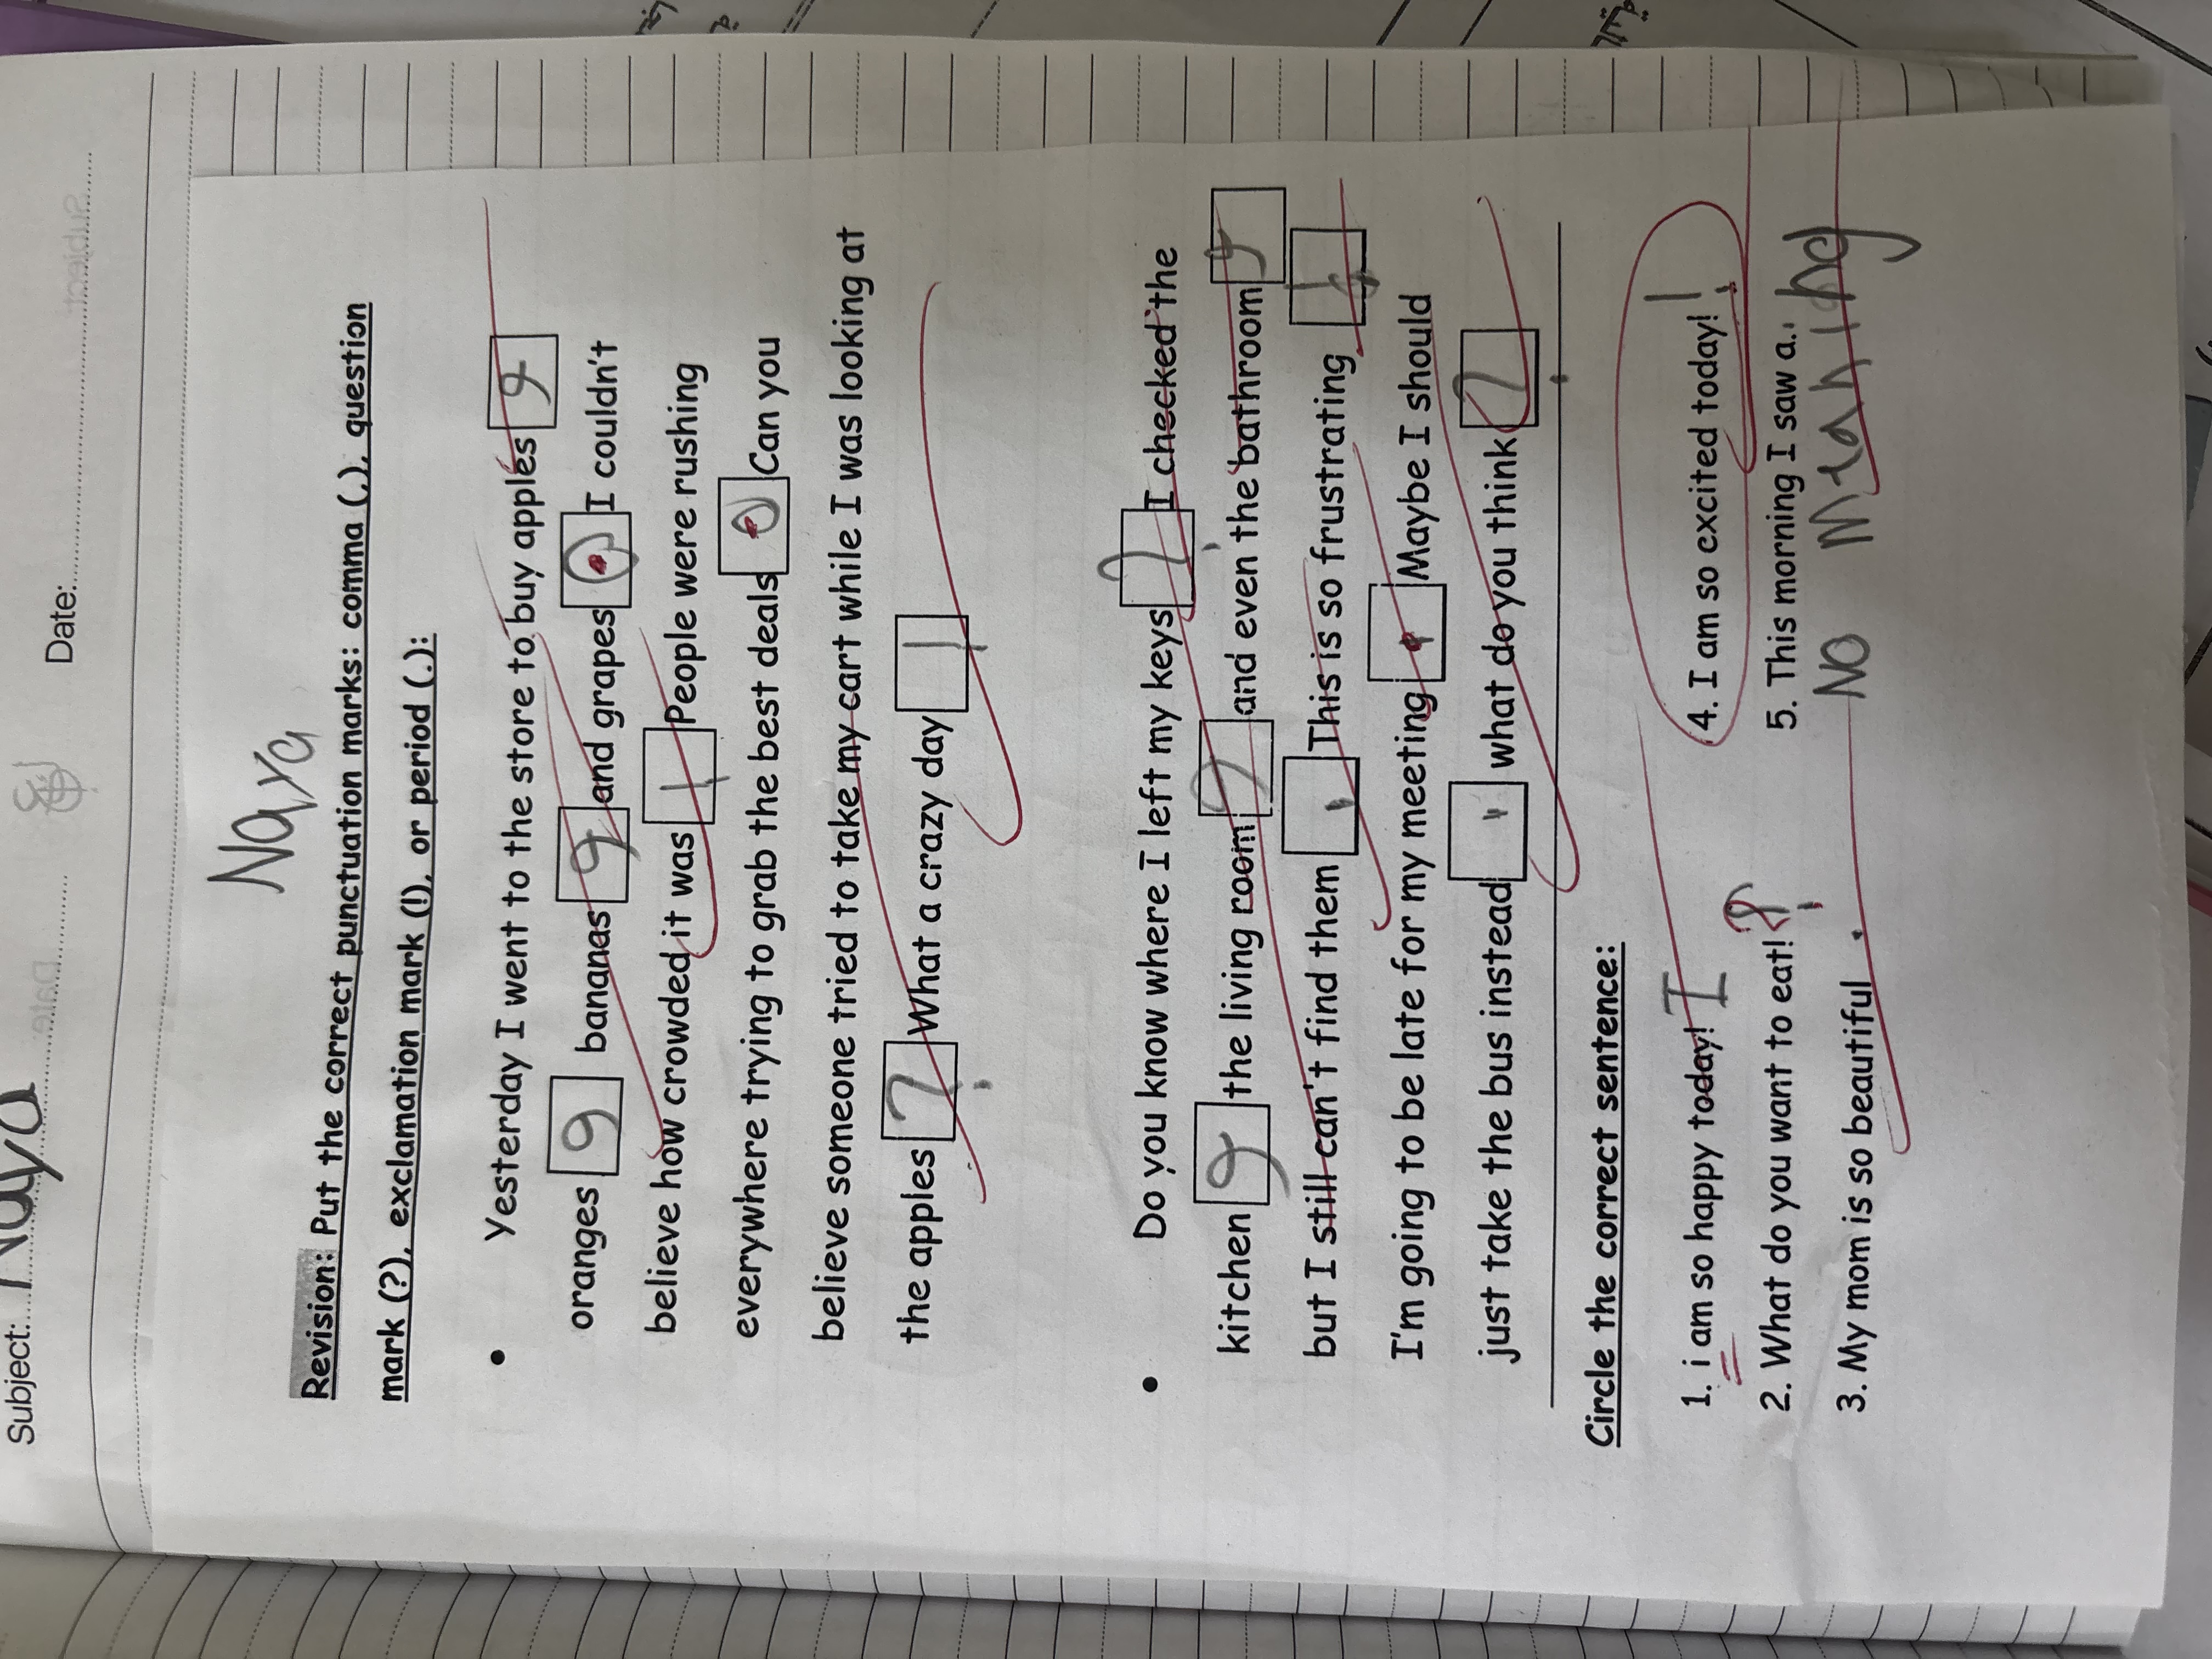 Subject: Naya
Date:
Naya
Revision: Put the correct punctuation marks: comma (,), question
mark (?), exclamation mark (!), or period (.):
• Yesterday I went to the store to buy apples ,
oranges , bananas , and grapes . I couldn't
believe how crowded it was ! People were rushing
everywhere trying to grab the best deals . Can you
believe someone tried to take my cart while I was looking at
the apples ? What a crazy day !
• Do you know where I left my keys ? I checked the
kitchen , the living room , and even the bathroom ,
but I still can't find them . This is so frustrating !
I'm going to be late for my meeting . Maybe I should
just take the bus instead , what do you think ?
Circle the correct sentence:
1. i am so happy today! I
2. What do you want to eat! ?
3. My mom is so beautiful .
4. I am so excited today! !
5. This morning I saw a.
No meaning